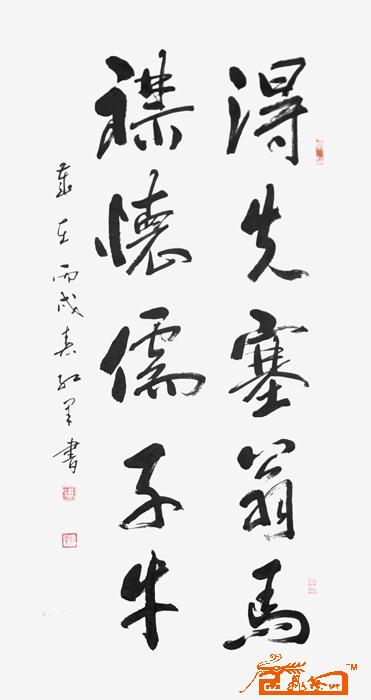 得失塞翁馬
襟懷儒子牛
歲在丙戌春紅書